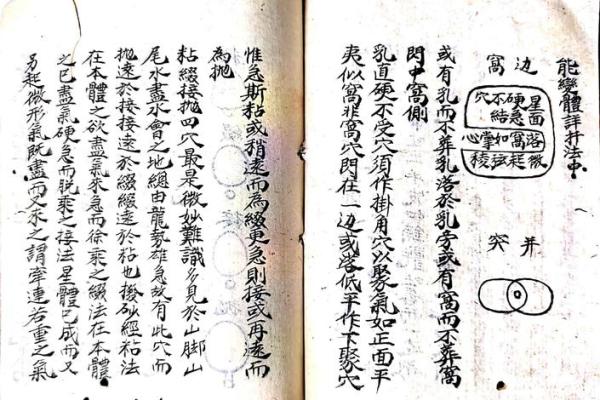 能變體詳井法中
边窩
星面硬急不結穴
落窩如掌心
微起弦稜
井突
或有乳而不葬乳落於乳旁或有窩而不葬窩
閃中窩側
乳直硬不受穴須作掛角穴以聚氣如正面平
夷似窩非窩穴閃在一边或落低平作下聚穴
惟急斯粘或稍遠而為綴更急則接或再遠而
為抛
粘綴接抛四穴最是微妙難識多見於山脚山
尾水盡水會之地總由龍勢雄急故有此穴而
抛遠於接接遠於綴綴遠於粘也後砂經粘法
在本體之欲盡氣來急而徐乘之綴法在本體
之已盡氣硬急而脫乘之接法星體已成而又
另起微形氣既盡而又求之謂牽連若重之氣